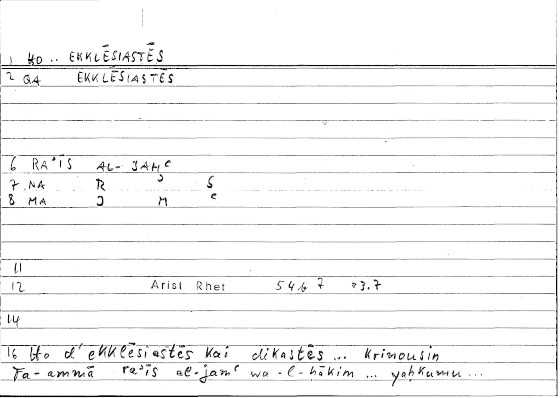 1 HO .. EKKLĒSIASTĒS
2 QA EKKLĒSIASTĒS
6 RAʾĪS AL-JAMʿ
7 NA R ʾ S
8 MA J M ʿ
11
12 Arist Rhet 54b 7 23.7
14
16 Ho d'ekklēsiastēs kai dikastēs ... krinousin
Fa-ammā raʾīs al-jamʿ wa-l-ḥākim ... yaḥkumu ...